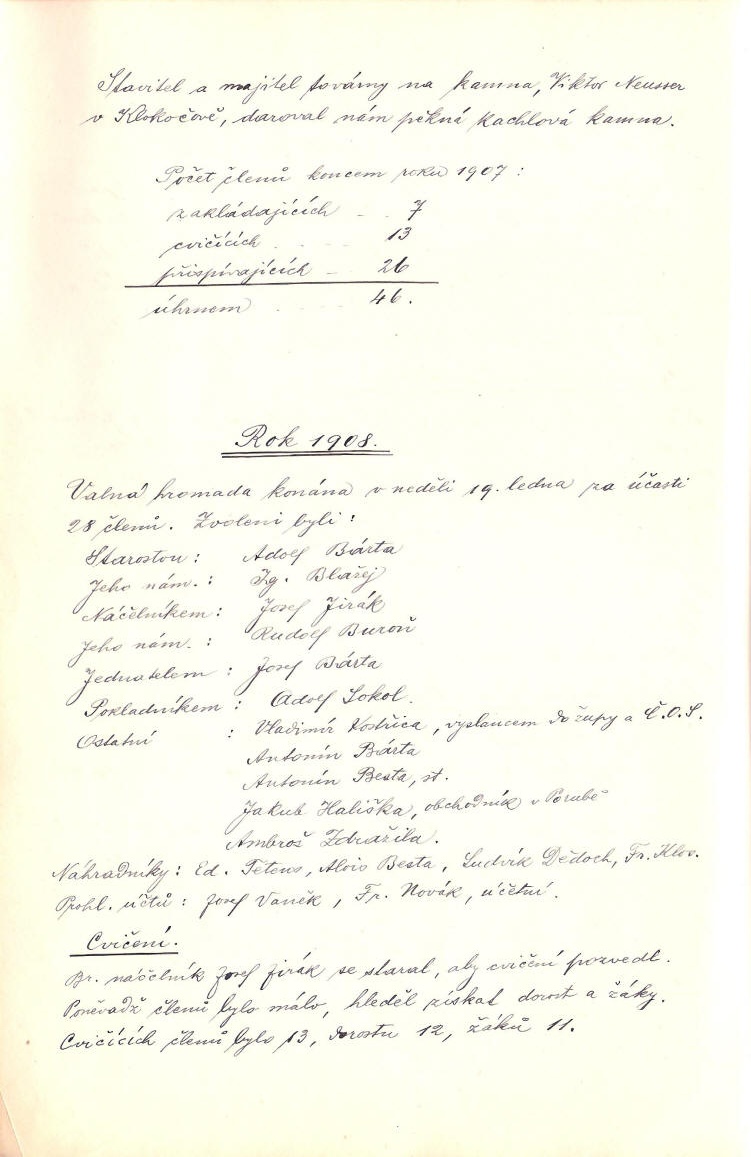 Stavitel a majitel továrny na kamna, Viktor Neusser
v Klokočově, daroval nám pěkná kachlová kamna.
Počet členů koncem roku 1907 :
zakládajících - . 7
cvičících . . . 13
přispívajících - 26
úhrnem . . . 46.
Rok 1908.
Valná hromada konána v neděli 19. ledna za účasti
28 členů. Zvoleni byli :
Starostou : Adolf Bárta
Jeho nám. : Ig. Blažej
Náčelníkem : Josef Jirák
Jeho nám. : Rudolf Buroň
Jednatelem : Josef Bárta
Pokladníkem : Adolf Sokol.
Ostatní : Vladimír Kostřica, vyslancem do župy a Č.O.S.
Antonín Bárta
Antonín Besta, st.
Jakub Hališka, obchodník v Porubě
Ambrož Zdražila.
Náhradníky : Ed. Tetens, Alois Besta, Ludvík Dědoch, Fr. Klos.
Prohl. účtů : Josef Vaněk, Fr. Novák, účetní.
Cvičení.
Br. náčelník Josef Jirák se staral, aby cvičení pozvedl.
Poněvadž členů bylo málo, hleděl získat dorost a žáky.
Cvičících členů bylo 13, dorostu 12, žáků 11.